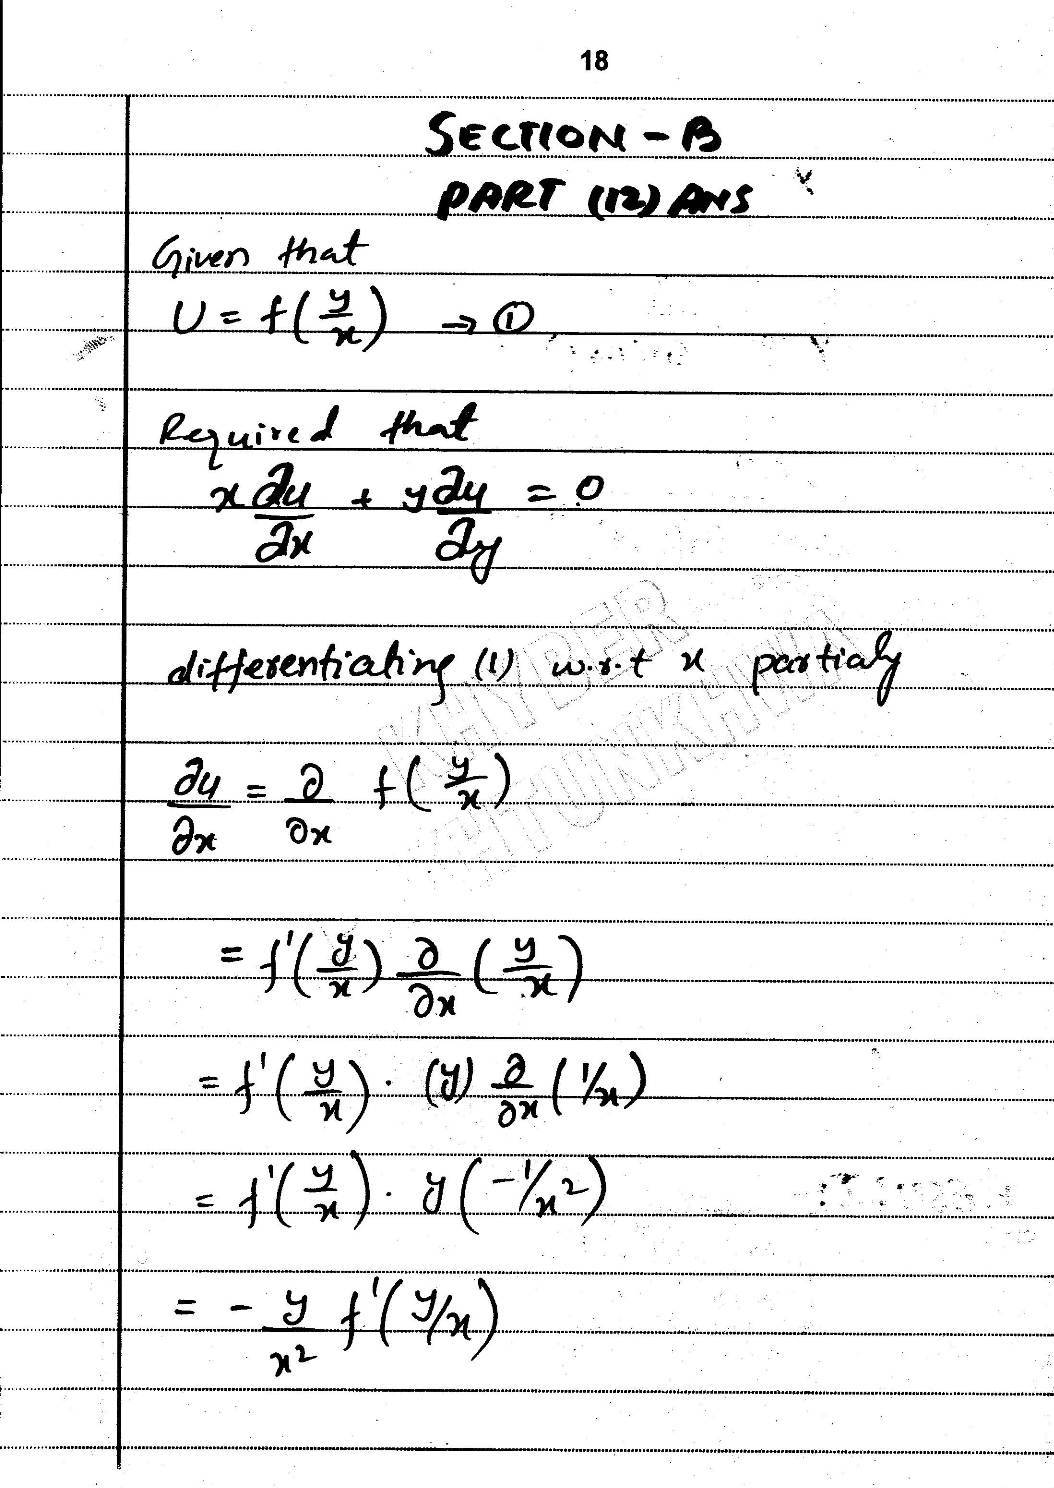 18
SECTION - B
PART (12) ANS
Given that
U = f(y/x) → ①
Required that
x ∂u/∂x + y ∂u/∂y = 0
differentiating (1) w.r.t x partialy
∂u/∂x = ∂/∂x f(y/x)
= f'(y/x) ∂/∂x (y/x)
= f'(y/x) · (y) ∂/∂x (1/x)
= f'(y/x) · y(-1/x²)
= - y/x² f'(y/x)
KHYBER